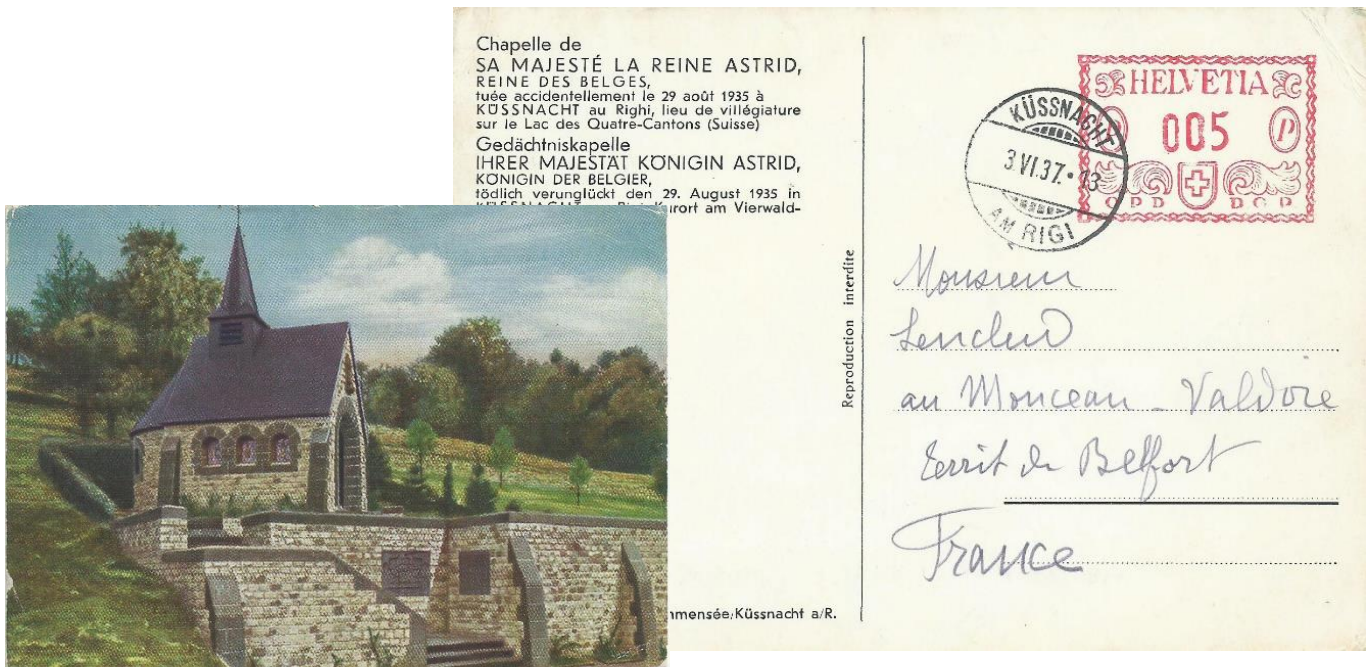 Chapelle de
SA MAJESTÉ LA REINE ASTRID,
REINE DES BELGES,
tuée accidentellement le 29 août 1935 à
KÜSSNACHT au Righi, lieu de villégiature
sur le Lac des Quatre-Cantons (Suisse)
Gedächtniskapelle
IHRER MAJESTÄT KÖNIGIN ASTRID,
KÖNIGIN DER BELGIER,
tödlich verunglückt den 29. August 1935 in
Kurort am Vierwald-
mmensée/Küssnacht a/R.
Reproduction interdite
KÜSSNACHT
3.VI.37.-13
AM RIGI
HELVETIA
P 005 P
OPD DGP
Monsieur
au Monceau - Valdoie
Territ de Belfort
France